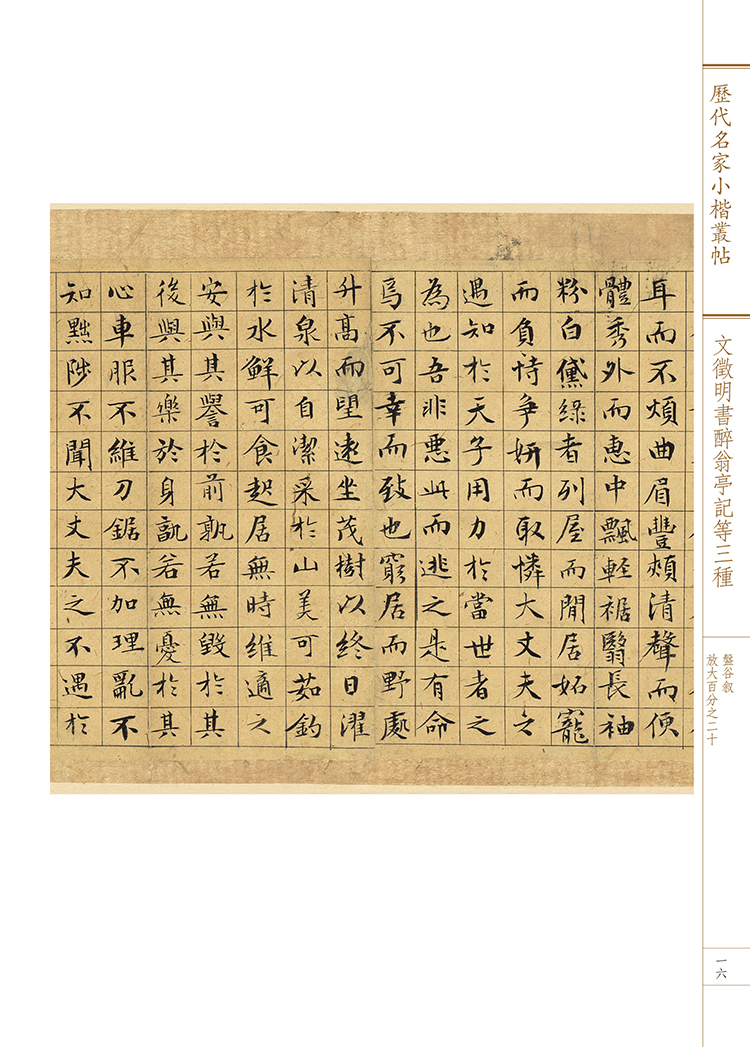 歷代名家小楷叢帖
文徵明書醉翁亭記等三種
盤谷叙
放大百分之二十
一六
耳而不煩曲眉豐頰清聲而便
體秀外而惠中飄輕裾翳長袖
粉白黛綠者列屋而閒居妬寵
而負恃爭妍而取憐大丈夫之
遇知於天子用力於當世者之
為也吾非惡此而逃之是有命
焉不可幸而致也窮居而野處
升高而望遠坐茂樹以終日濯
清泉以自潔采於山美可茹釣
於水鮮可食起居無時維適之
安與其譽於前孰若無毀於其
後與其樂於身孰若無憂於其
心車服不維刀鋸不加理亂不
知黜陟不聞大丈夫之不遇於